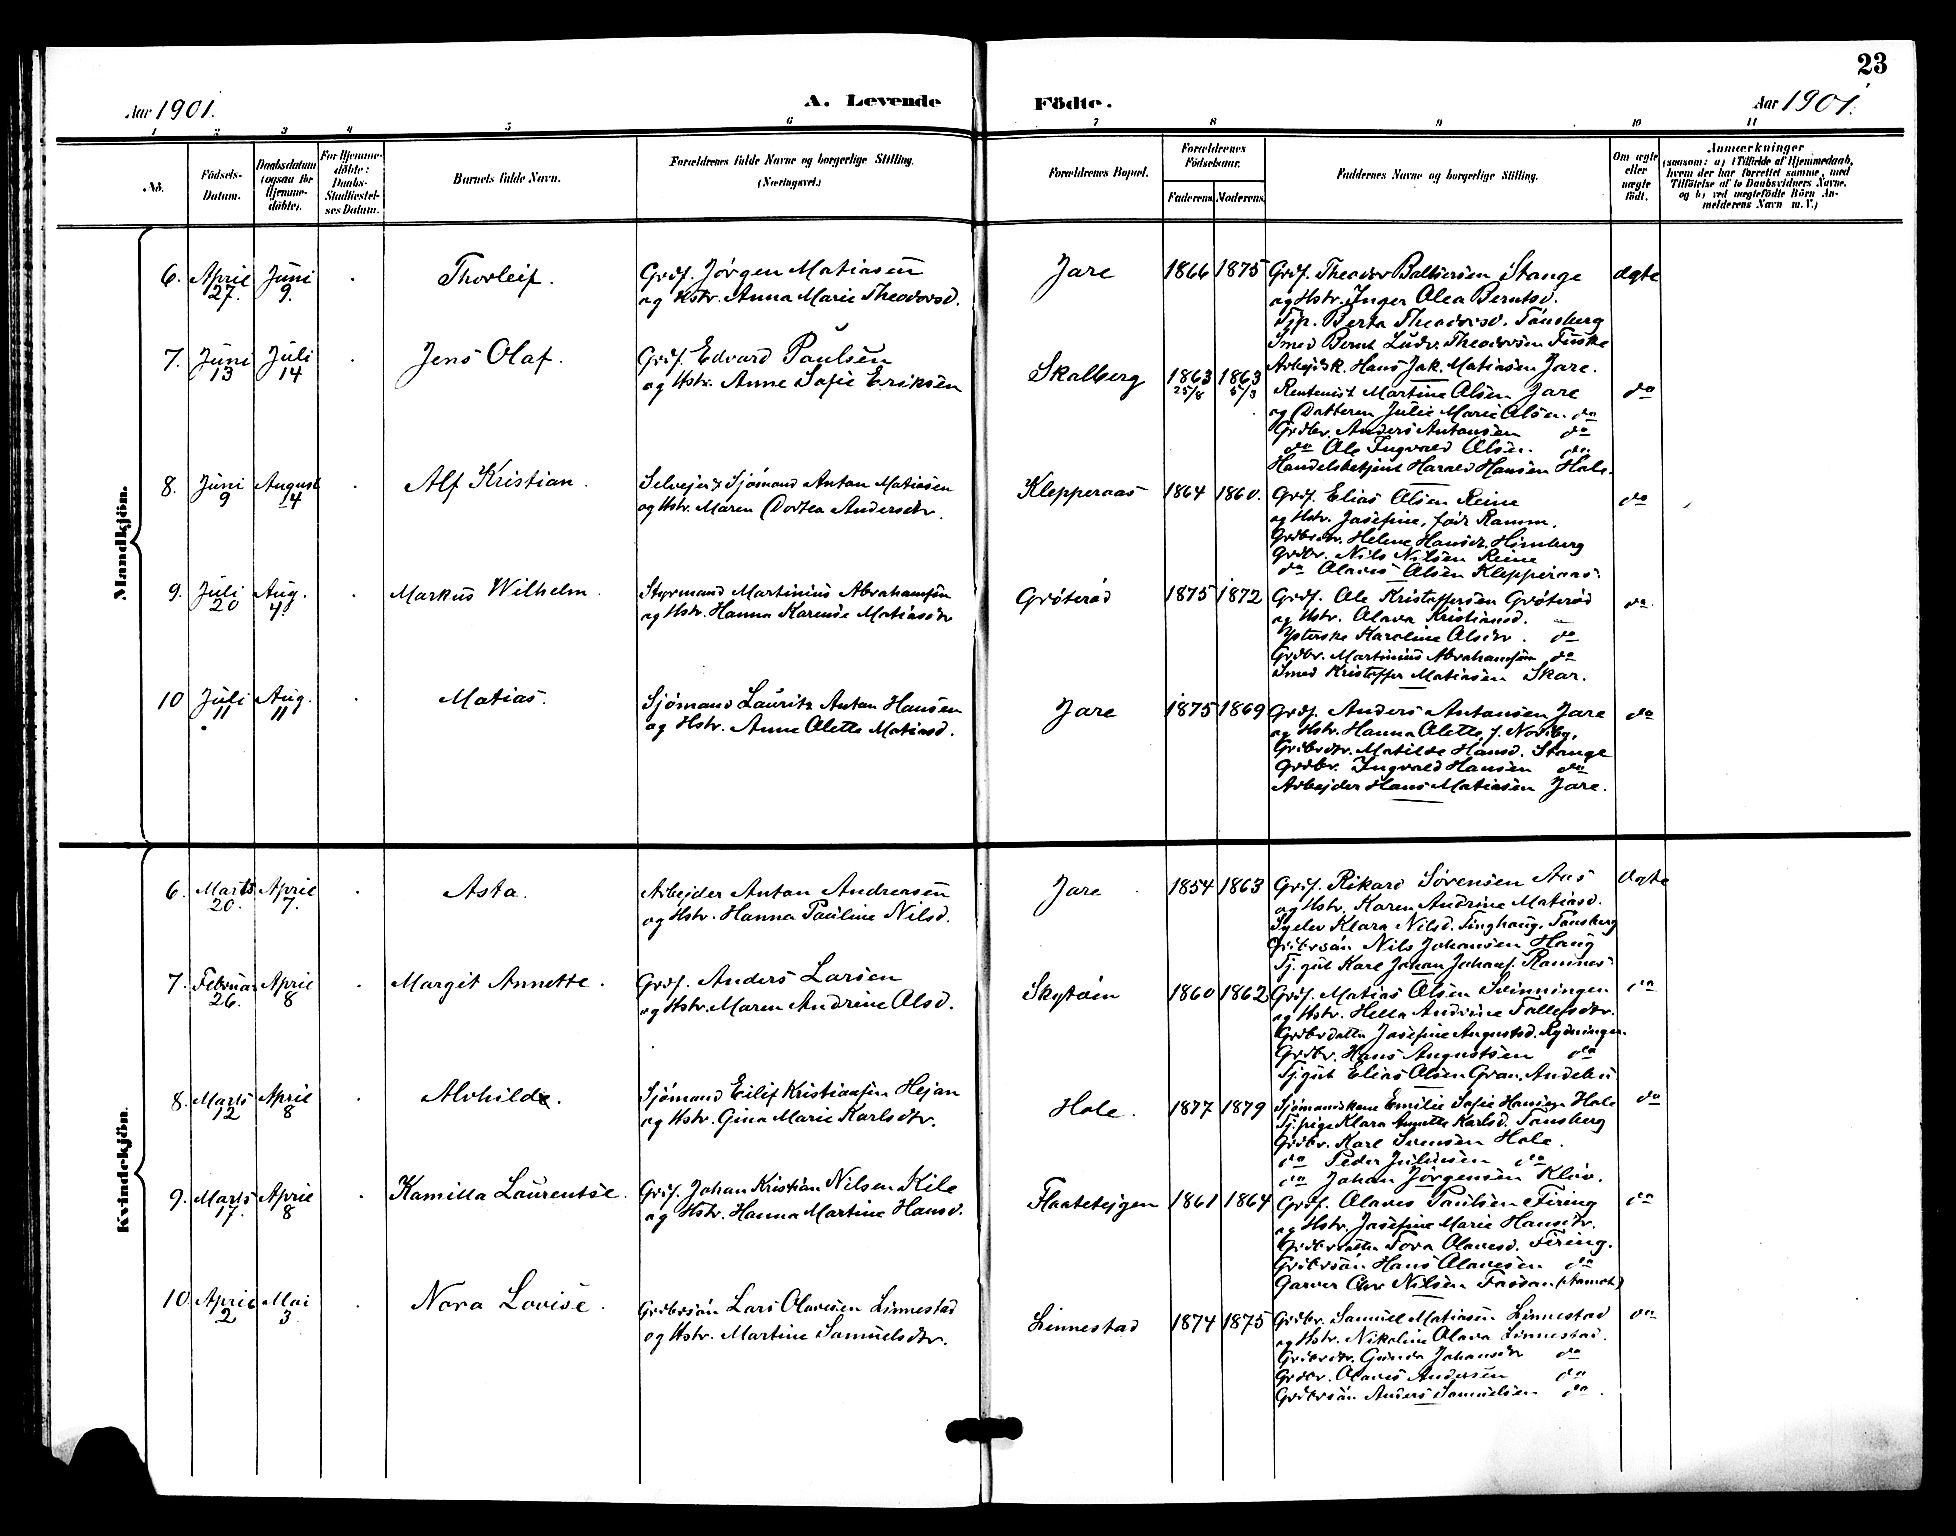 23
Aar 1901.
A. Levende
Födte.
Aar 1901.
1 2 3 4 5 6 7 8 9 10 11
No.
Födsels-
Datum.
Daabsdatum
(ogsaa for
Hjemme-
döbte).
For Hjemme-
döbte:
Daabs-
Stadfæstel-
ses Datum.
Barnets fulde Navn.
Forældrenes fulde Navne og borgerlige Stilling.
(Næringsvei.)
Forældrenes Bopæl.
Forældrenes
Födselsaar.
Faderens. Moderens.
Faddernes Navne og borgerlige Stilling.
Om ægte
eller
uægte
födt.
Anmærkninger
(saasom: a) i Tilfælde af Hjemmedaab,
hvem der har forrettet samme, med
Tilföielse af to Daabsvidners Navne,
og b) ved uægtefödte Börn An-
melderens Navn m. V.)
Mandkjön.
6. April 27. Juni 9. Thorleif.
Grdf. Jörgen Matiasen
og Hstr. Anna Marie Theodorsd.
Jare 1866 1875
Grdf. Theodor Baltsersen Stange
og Hstr. Inger Olea Berntsd.
Tjp. Berta Theodorsd. Tönsberg
Smed Bernt Ludv. Theodorsen Tuske
Arbejdsk. Hans Jak. Matiasen Jare.
ægte
7. Juni 13 Juli 14 Jens Olaf.
Grdf. Edvard Paulsen
og Hstr. Anne Sofie Eriksen
Skalberg 1863 25/8 1863 5/3
Rentenist Martine Olsen Jare
og Datteren Julie Marie Olsen do
Grdbr. Anders Antonsen do
do Ole Ingvald Olsen. do
Handelsbetjent Harald Hansen Hole.
do
8. Juni 9 August 14 Alf Kristian.
Selvejer & Sjömand Anton Matiasen
og Hstr. Maren Dortea Andersdtr.
Klepperaas 1864 1860.
Grdf. Elias Olsen Reine
og Hstr. Josefine, född Ramm.
Grdbrdtr. Helene Hansdr. Himberg
Grdbr. Nils Nilsen Reine
do Olaves Olsen Klepperaas.
do
9. Juli 20 Aug. 4. Markus Wilhelm.
Styrmand Martinius Abrahamsen
og Hstr. Hanna Karense Matiasdtr
Gröteröd 1875 1872
Grdf. Ole Kristoffersen Gröteröd
og Hstr. Olava Kristiansd.
Ysterske Karoline Olsdtr. do
Grdbr. Martinius Abrahamsen do
Smed Kristoffer Matiasen Skar.
do.
10 Juli 11 Aug. 11 Matias.
Sjömand Lauritz Anton Hansen
og Hstr. Anne Olette Matiasd.
Jare 1875 1869
Grdf. Anders Antonsen Jare
og Hstr. Hanna Olette, f. Nordby,
Grdbrdtr. Matilde Hansd. Stange
Grdbr. Ingvald Hansen do
Arbejder Hans Matiasen Jare.
do
Kvindekjön.
6. Marts 20. April 7. Asta.
Arbejder Anton Andersen
og Hstr. Hanna Pauline Nilsd.
Jare 1854 1863
Grdf. Rikard Sörensen Aas
og Hstr. Karen Andrine Matiasd.
Syelev Klara Nilsd. Tinghaug, Tönsberg
Grdbrsön Nils Johansen Haug
Tj.gut Karl Johan Johans. Ramnes
ægte
7. Februar 26. April 8 Margit Annette.
Grdf. Anders Larsen
og Hstr. Maren Andrine Olsd.
Skytöen 1860 1862
Grdf. Matias Olsen Svinningen
og Hstr. Hella Andrine Tollefsdtr.
Grdbrdatter Josefine Augustsd. Rydningen
Grdbr. Hans Augustsen do
Tj.gut Elias Olsen Gran, Andebu
do
8. Marts 12 April 8 Alvhilde.
Sjömand Eilif Kristiansen Hejan
og Hstr. Gina Marie Karlsdtr.
Hole. 1877 1879
Sjömandskone Emilie Sofie Hansen Hole
Tj.pige Klara Annette Karlsd. Tönsberg
Grdbr. Karl Svensen Hole.
do Peder Juliusen do
do Johan Jörgensen Klöv.
do
9. Marts 17. April 8 Kamilla Laurentse.
Grdf. Johan Kristian Nilsen Kile
og Hstr. Hanna Martine Hansd.
Flaatetejgen 1861 1864
Grdf. Olaves Paulsen Firing
og Hstr. Josefine Marie Hansdtr.
Grdbrdatter Tora Olavesd. Firing.
Grdbrsön Hans Olavesen do
Garver Nilsen
do
10. April 2 Mai 3 Nora Lovise.
Grdbrsön Lars Olavesen Linnestad
og Hstr. Martine Samuelsdtr.
Linnestad 1874 1875
Grdbr. Samuel Matiasen Linnestad
og Hstr. Nikoline Olava Linnestad.
Grdbrdtr. Gunda Johansdtr do
Grdbr. Olaves Andersen do
Grdbrsön Anders Samuelsen do.
do